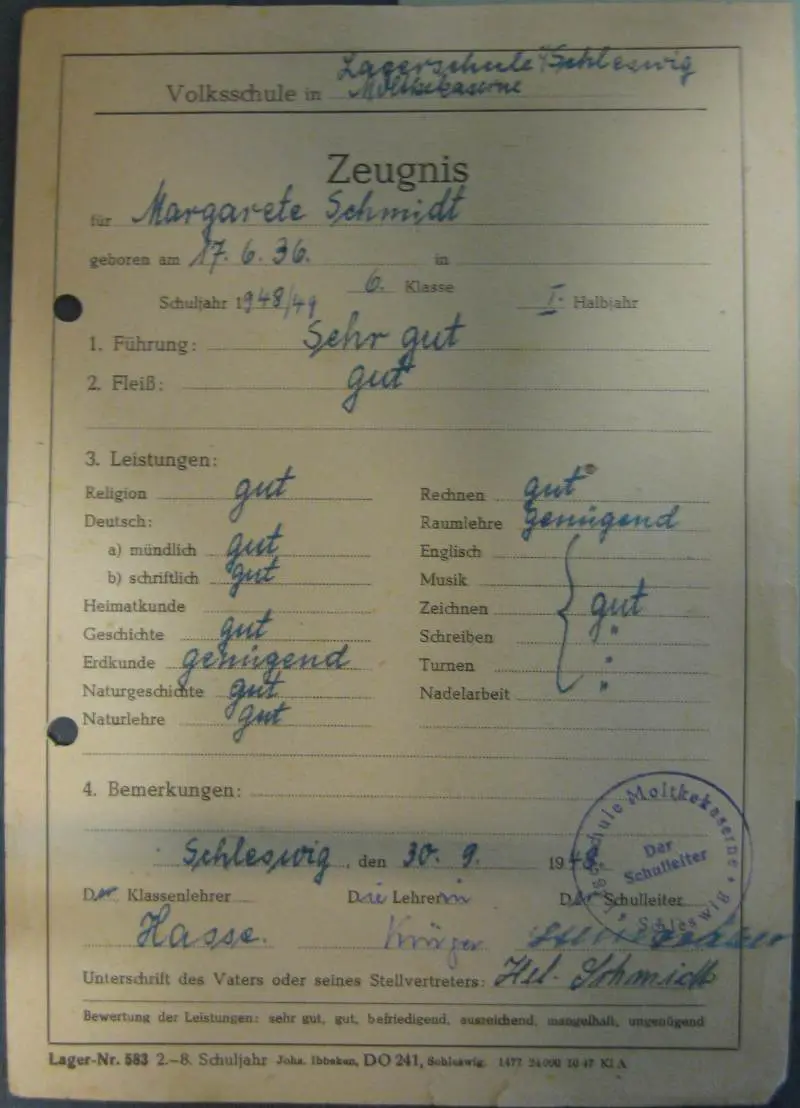 Lagerschule Schleswig
Volksschule in Moltkekaserne
Zeugnis
für Margarete Schmidt
geboren am 17. 6. 36. in
Schuljahr 1948/49 6. Klasse I. Halbjahr
1. Führung: Sehr gut
2. Fleiß: gut
3. Leistungen:
Religion gut
Deutsch:
a) mündlich gut
b) schriftlich gut
Heimatkunde
Geschichte gut
Erdkunde genügend
Naturgeschichte gut
Naturlehre gut
Rechnen gut
Raumlehre genügend
Englisch
Musik
Zeichnen gut
Schreiben "
Turnen "
Nadelarbeit "
4. Bemerkungen:
Schleswig, den 30. 9. 1948
Lagerschule Moltkekaserne • Schleswig •
Der
Schulleiter
Der Klassenlehrer Die Lehrerin Der Schulleiter
Hasse. Krüger
Unterschrift des Vaters oder seines Stellvertreters: Hel. Schmidt
Bewertung der Leistungen: sehr gut, gut, befriedigend, ausreichend, mangelhaft, ungenügend
Lager-Nr. 583 2.–8. Schuljahr Johs. Ibbeken, DO 241, Schleswig. 1477 24000 10 47 Kl A